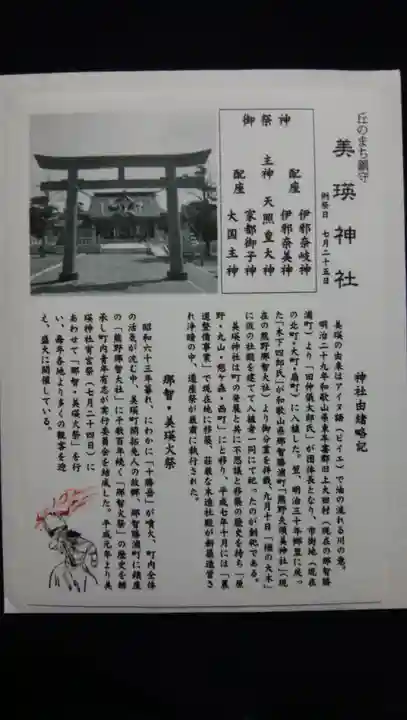 丘のまち鎮守
美瑛神社
例祭日 七月二十五日
御祭神
配座 伊邪奈岐神
伊邪奈美神
主神 天照皇大神
配座 家都御子神
大国主神
神社由緒略記
美瑛の由来はアイヌ語(ピイエ)で油の流れる川の意。
明治二十九年和歌山県東牟婁郡旧上太田村(現在の那智勝
浦町)より「田仲儀太郎氏」が団体長となり、市街地(現在
の北町・大町・扇町)に入植した。翌、明治三十年郷里に戻っ
た「木下四郎氏」が和歌山県那智勝浦町「熊野夫須美神社」(現
在の熊野那智大社)より御分霊を拝戴、九月十日「楡の大木」
に仮の社殿を建てて入植者一同にて祀ったのが創祀である。
美瑛神社は町の発展と共に不思議と移築の歴史を持ち「原
野・丸山・憩ヶ森・西町」にと移り、平成七年十月には「農
道整備事業」で現在地に移築、荘厳な木造社殿が新築造営さ
れ浄闇の中、遷座祭が厳粛に執行された。
那智・美瑛火祭
昭和六十三年暮れ、にわかに「十勝岳」が噴火、町内全体
の活気が沈む中、美瑛町開拓先人の故郷、那智勝浦町に鎮座
の「熊野那智大社」に千数百年続く「那智火祭」の歴史を継
承し町内青年有志が実行委員会を結成した。平成元年より美
瑛神社宵宮祭(七月二十四日)に
あわせて「那智・美瑛火祭」を行
い、毎年各地より多くの観客を迎
え、盛大に開催している。